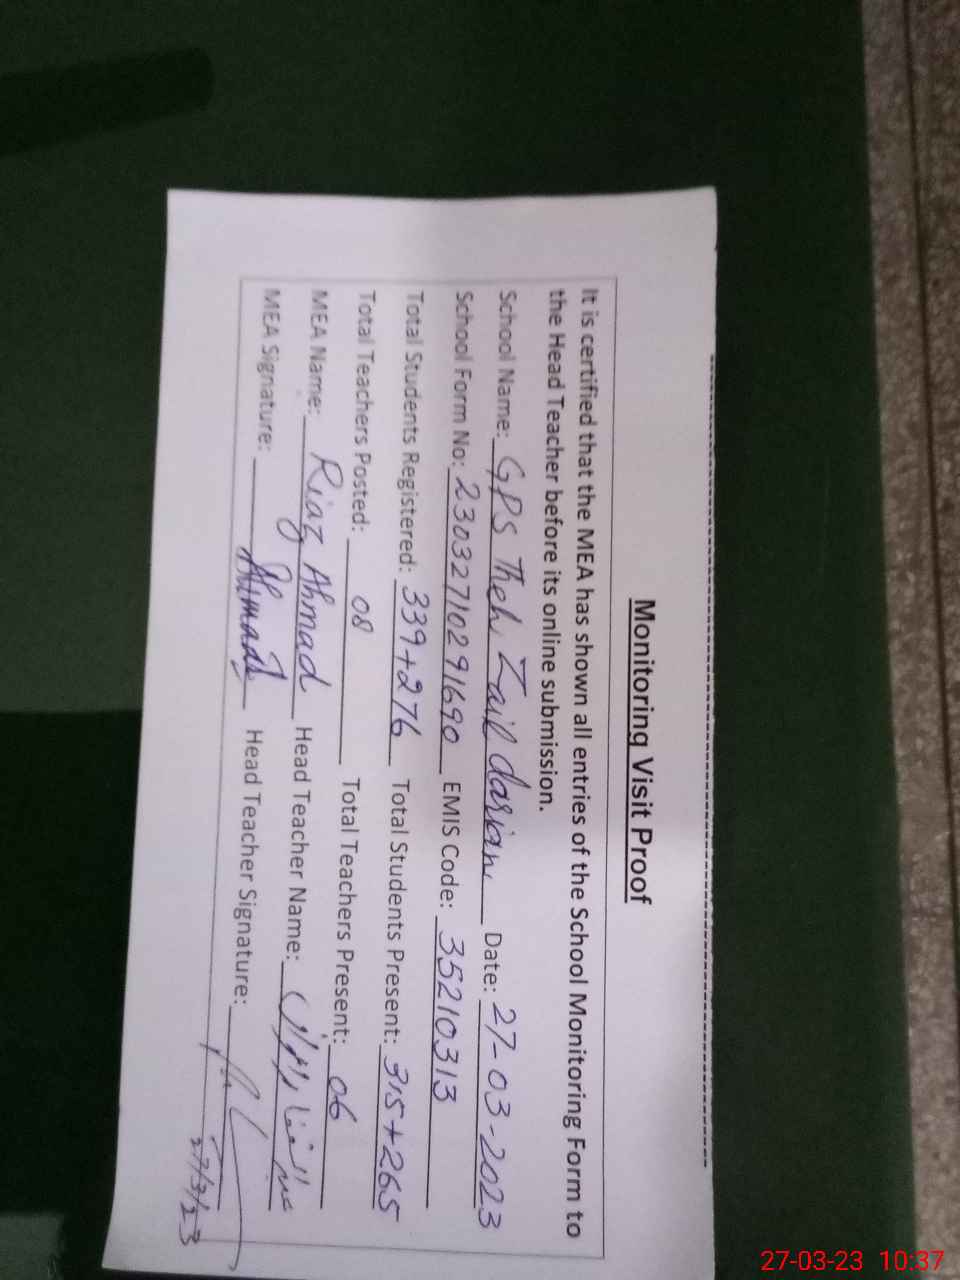 Monitoring Visit Proof
It is certified that the MEA has shown all entries of the School Monitoring Form to
the Head Teacher before its online submission.
School Name: GPS Theh Zaildarian Date: 27-03-2023
School Form No: 230327102 91690 EMIS Code: 35210313
Total Students Registered: 339+276 Total Students Present: 315+265
Total Teachers Posted: 08 Total Teachers Present: 06
MEA Name: Riaz Ahmad Head Teacher Name:
MEA Signature: Ahmad Head Teacher Signature:
27/3/23
27-03-23 10:37